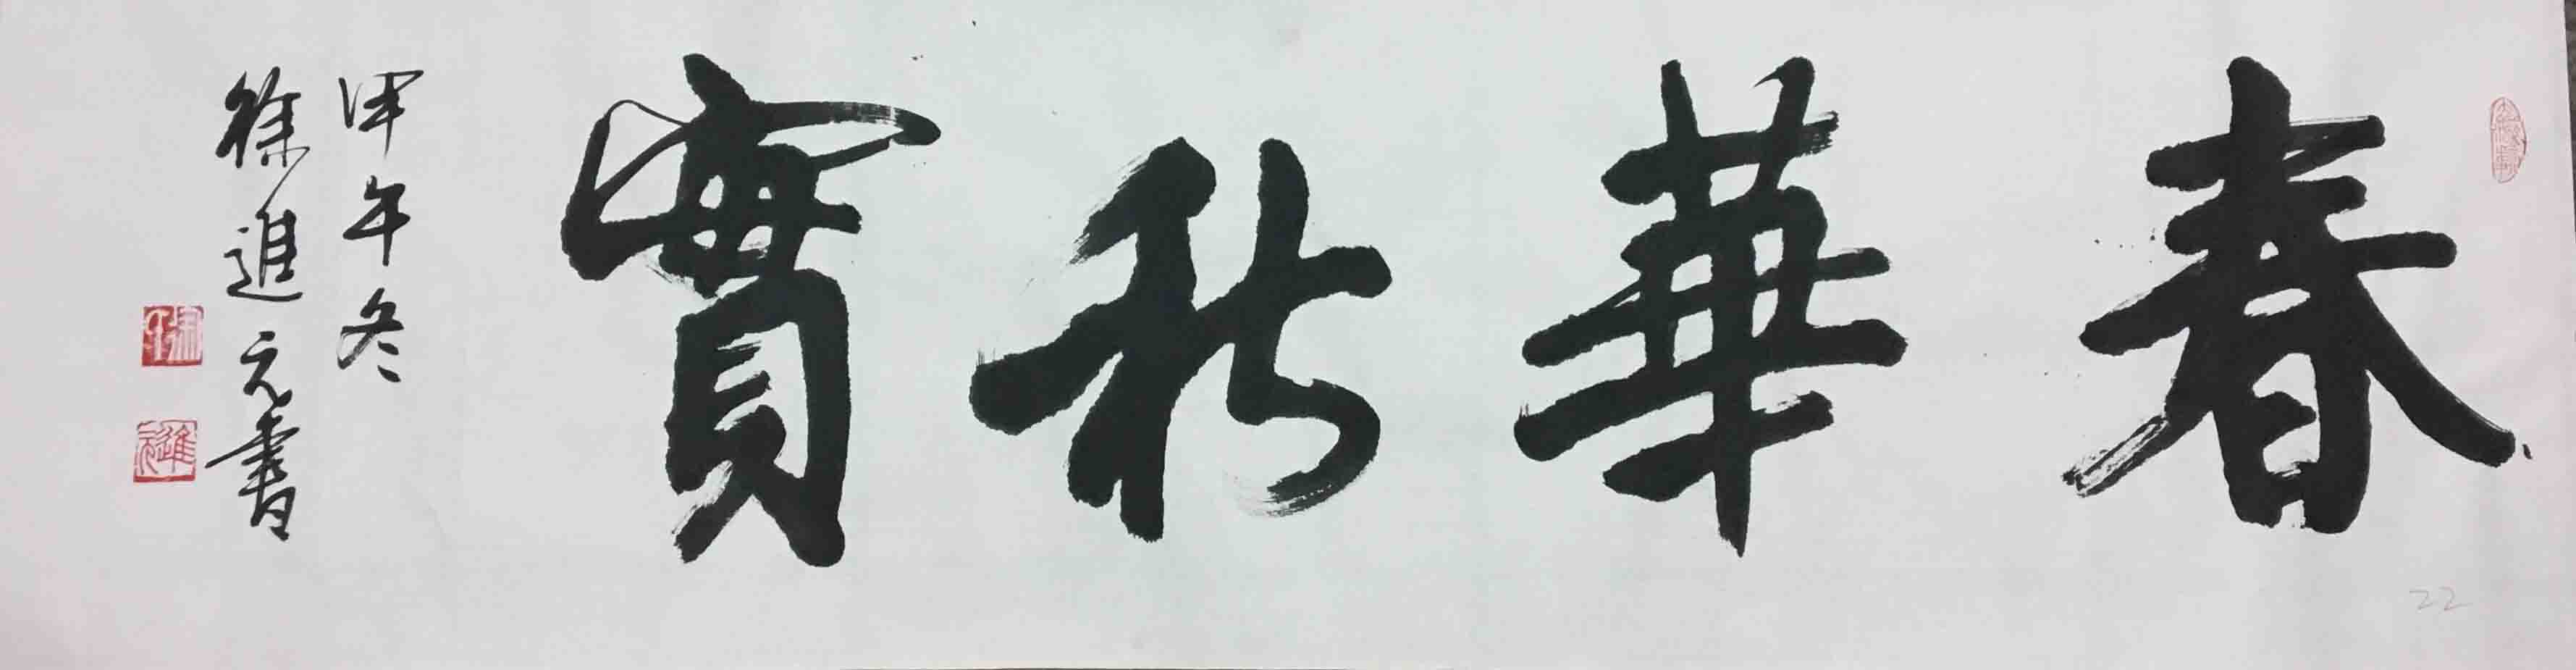 春華秋實
甲午冬
徐進元書
22